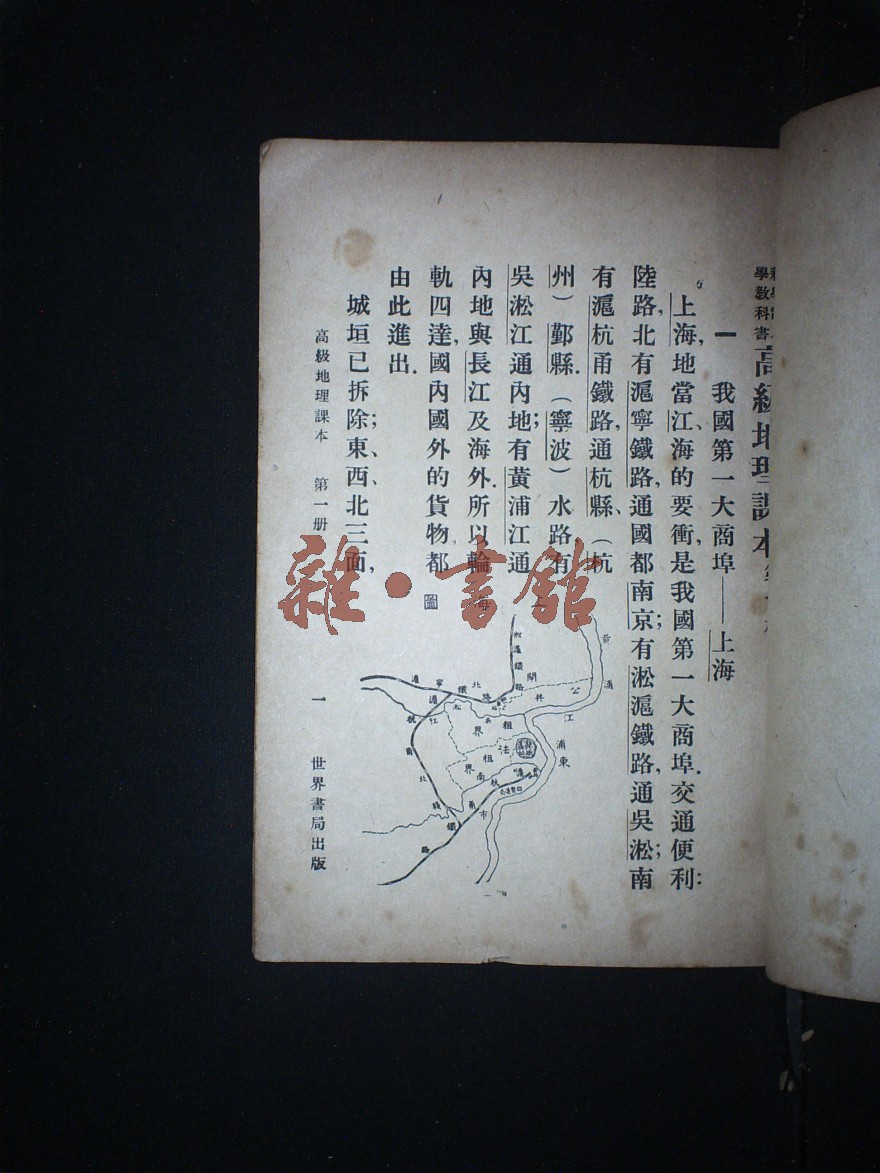 學教科書 高級地理課本
一 我國第一大商埠——上海
上海地當江、海的要衝,是我國第一大商埠.交通便利:
陸路,北有滬寧鐵路,通國都南京;有淞滬鐵路,通吳淞;南
有滬杭甬鐵路,通杭縣、(杭
州)鄞縣.(寧波)水路有
吳淞江通內地;有黃浦江通
內地與長江及海外.所以輪
軌四達,國內國外的貨物都
由此進出.
城垣已拆除;東、西、北三面,
雜·書館
圖
淞滬鐵路
黃浦江
浦東
公共租界
法租界
閘北
南市
滬寧鐵路
滬杭甬鐵路
高級地理課本 第一冊
一
世界書局出版